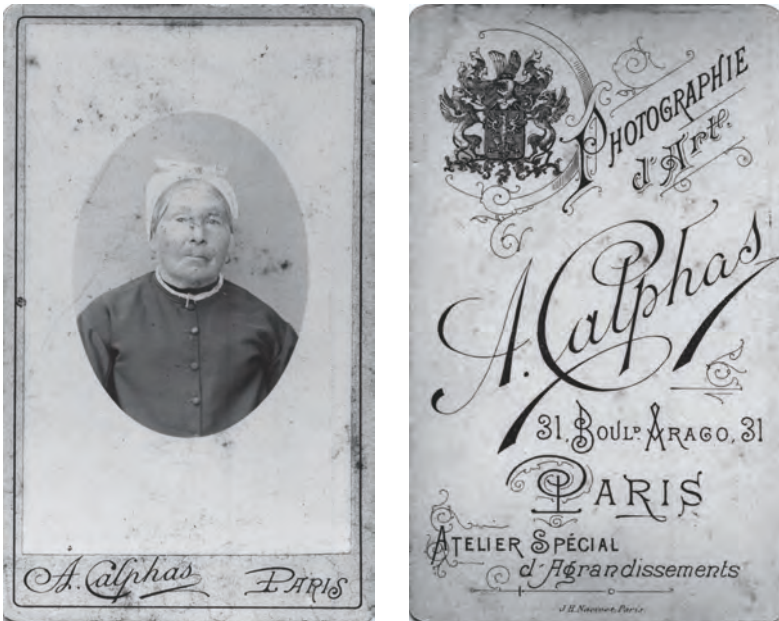 A. Calphas PARIS
PHOTOGRAPHIE
d'Art.
A. Calphas
31, BOULD ARAGO, 31
PARIS
ATELIER SPÉCIAL
d'Agrandissements
Paris